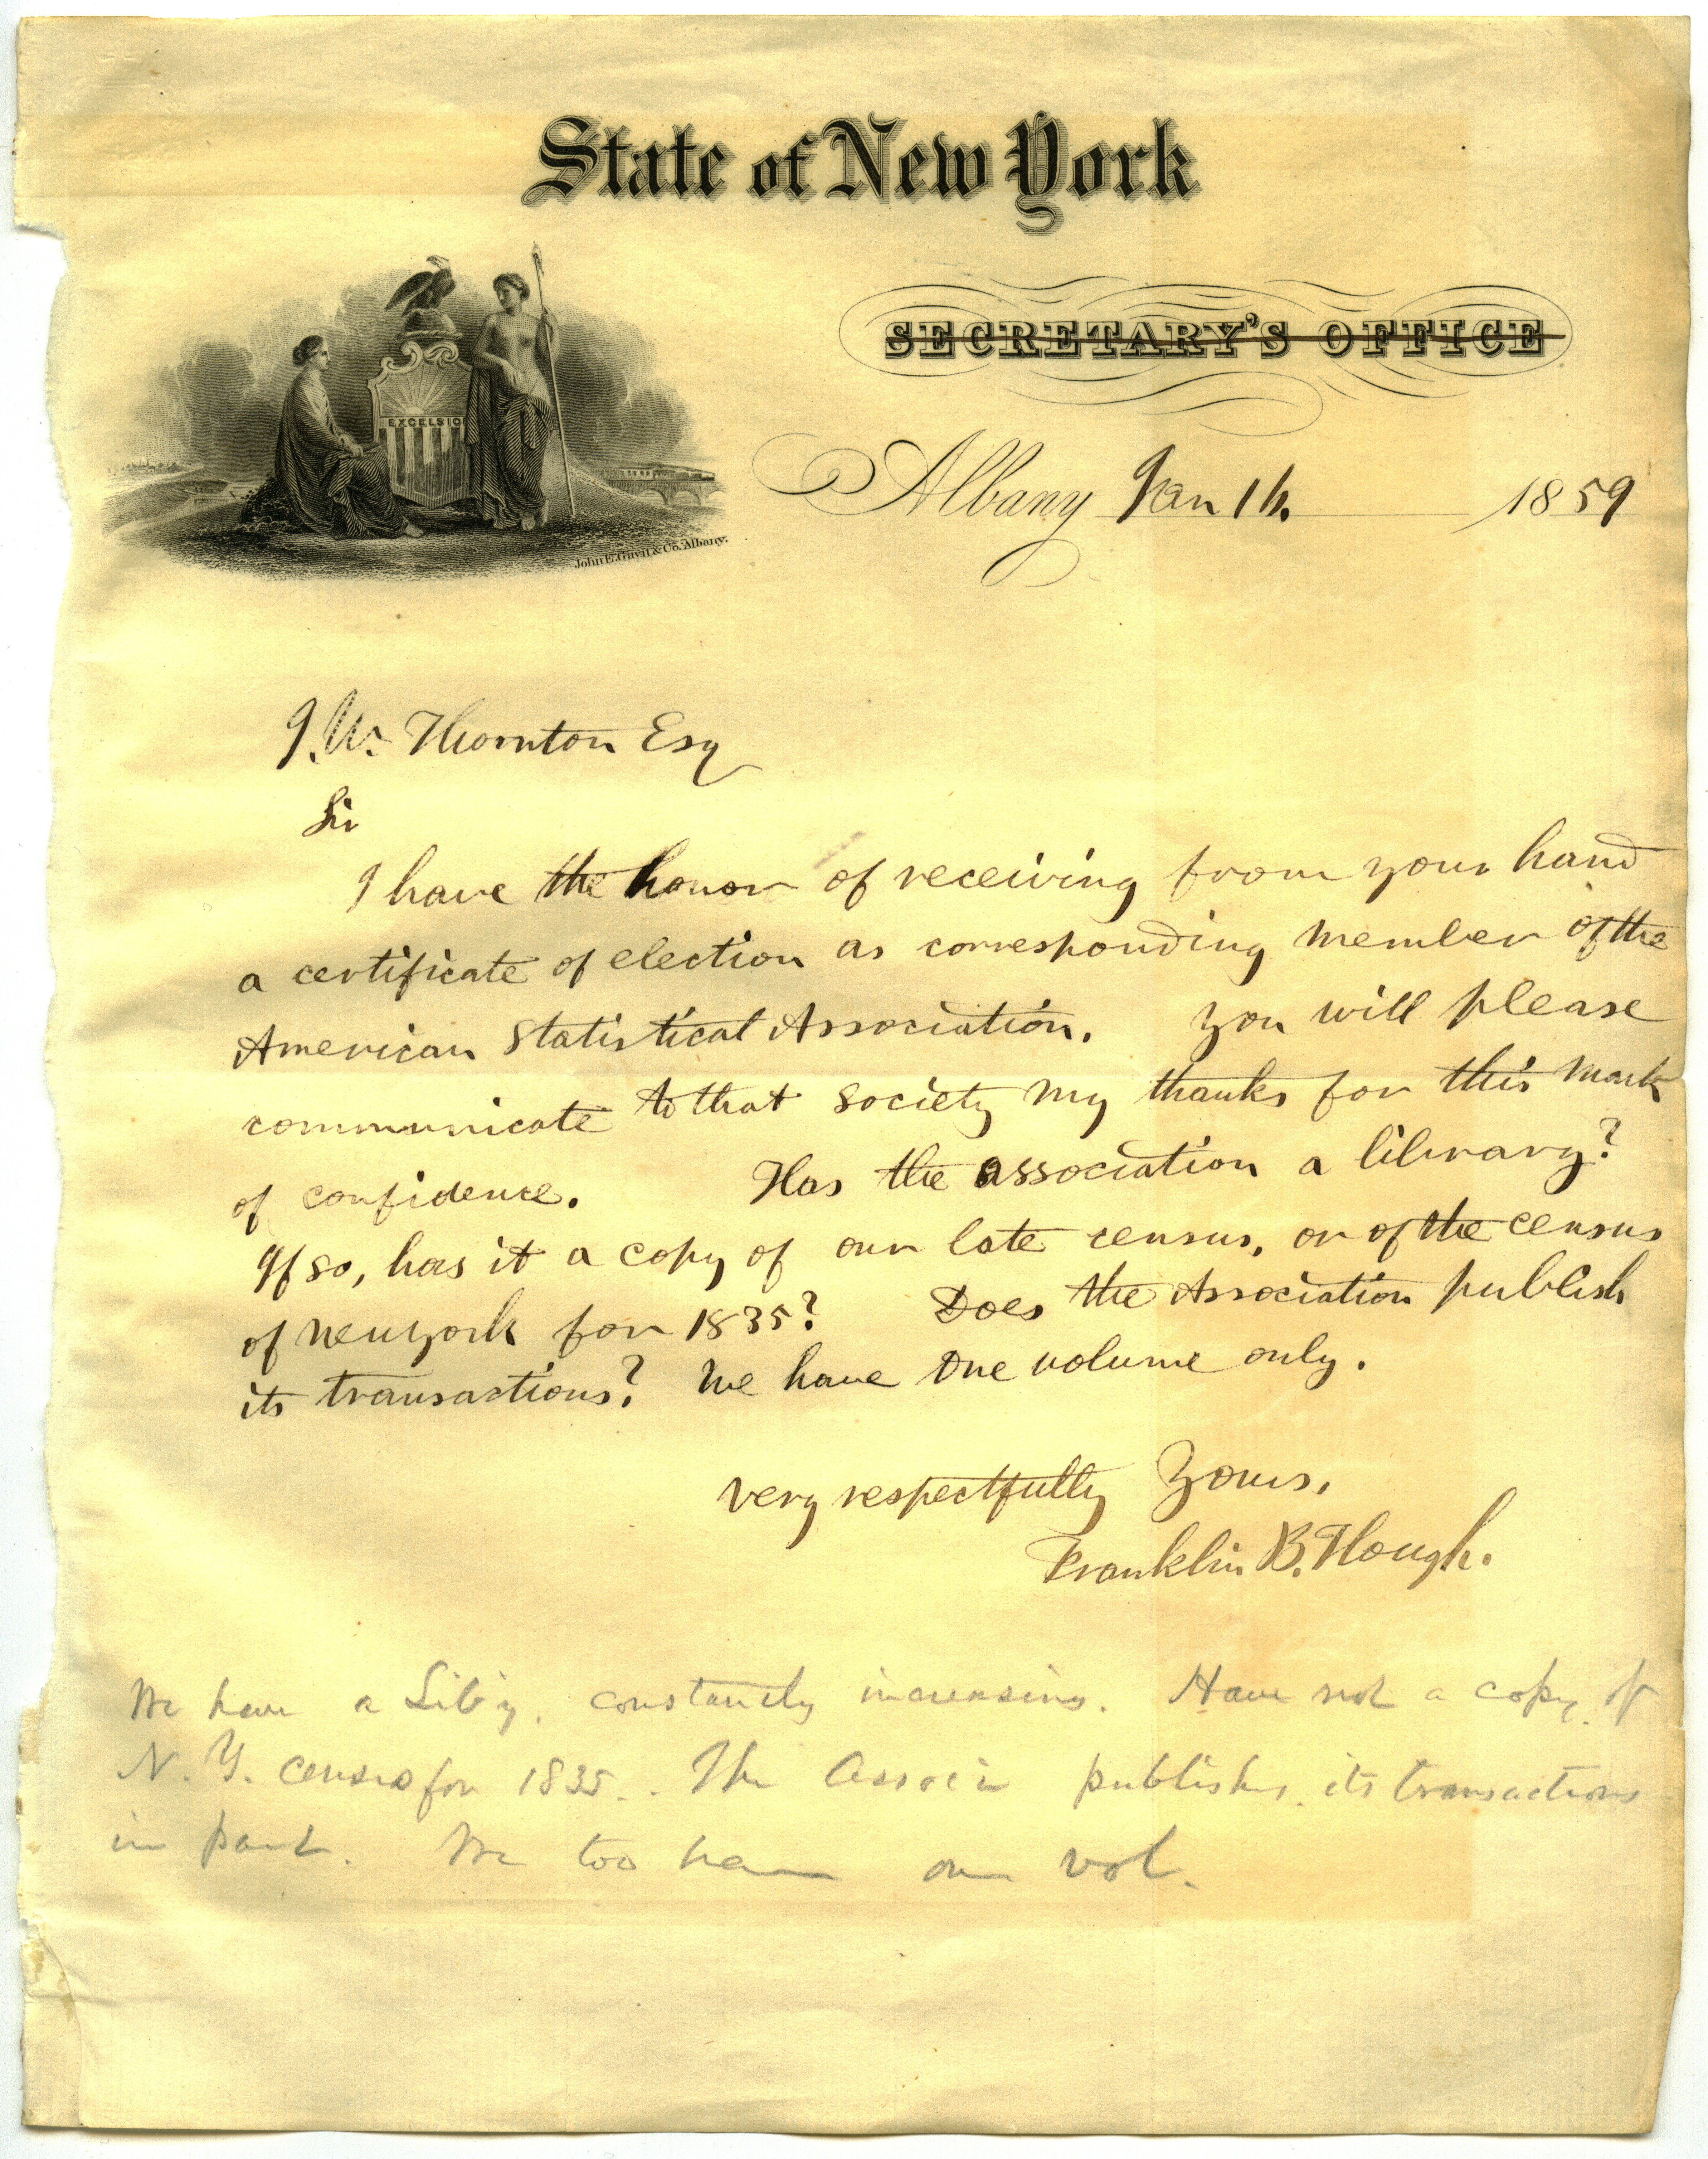 State of New York
SECRETARY'S OFFICE
EXCELSIO
John E. Gavit & Co. Albany.
Albany Jan 16. 1859
J. W. Thornton Esq
Sir
I have the honor of receiving from your hand
a certificate of election as corresponding member of the
American Statistical Association. You will please
communicate to that society my thanks for this mark
of confidence. Has the association a library?
If so, has it a copy of our late census, or of the census
of New York for 1835? Does the Association publish
its transactions? We have one volume only.
very respectfully Yours,
Franklin B. Hough.
We have a Lib'y, constantly increasing. Have not a copy of
N. Y. census for 1835. The Associn publishes its transactions
in part. We too have one vol.